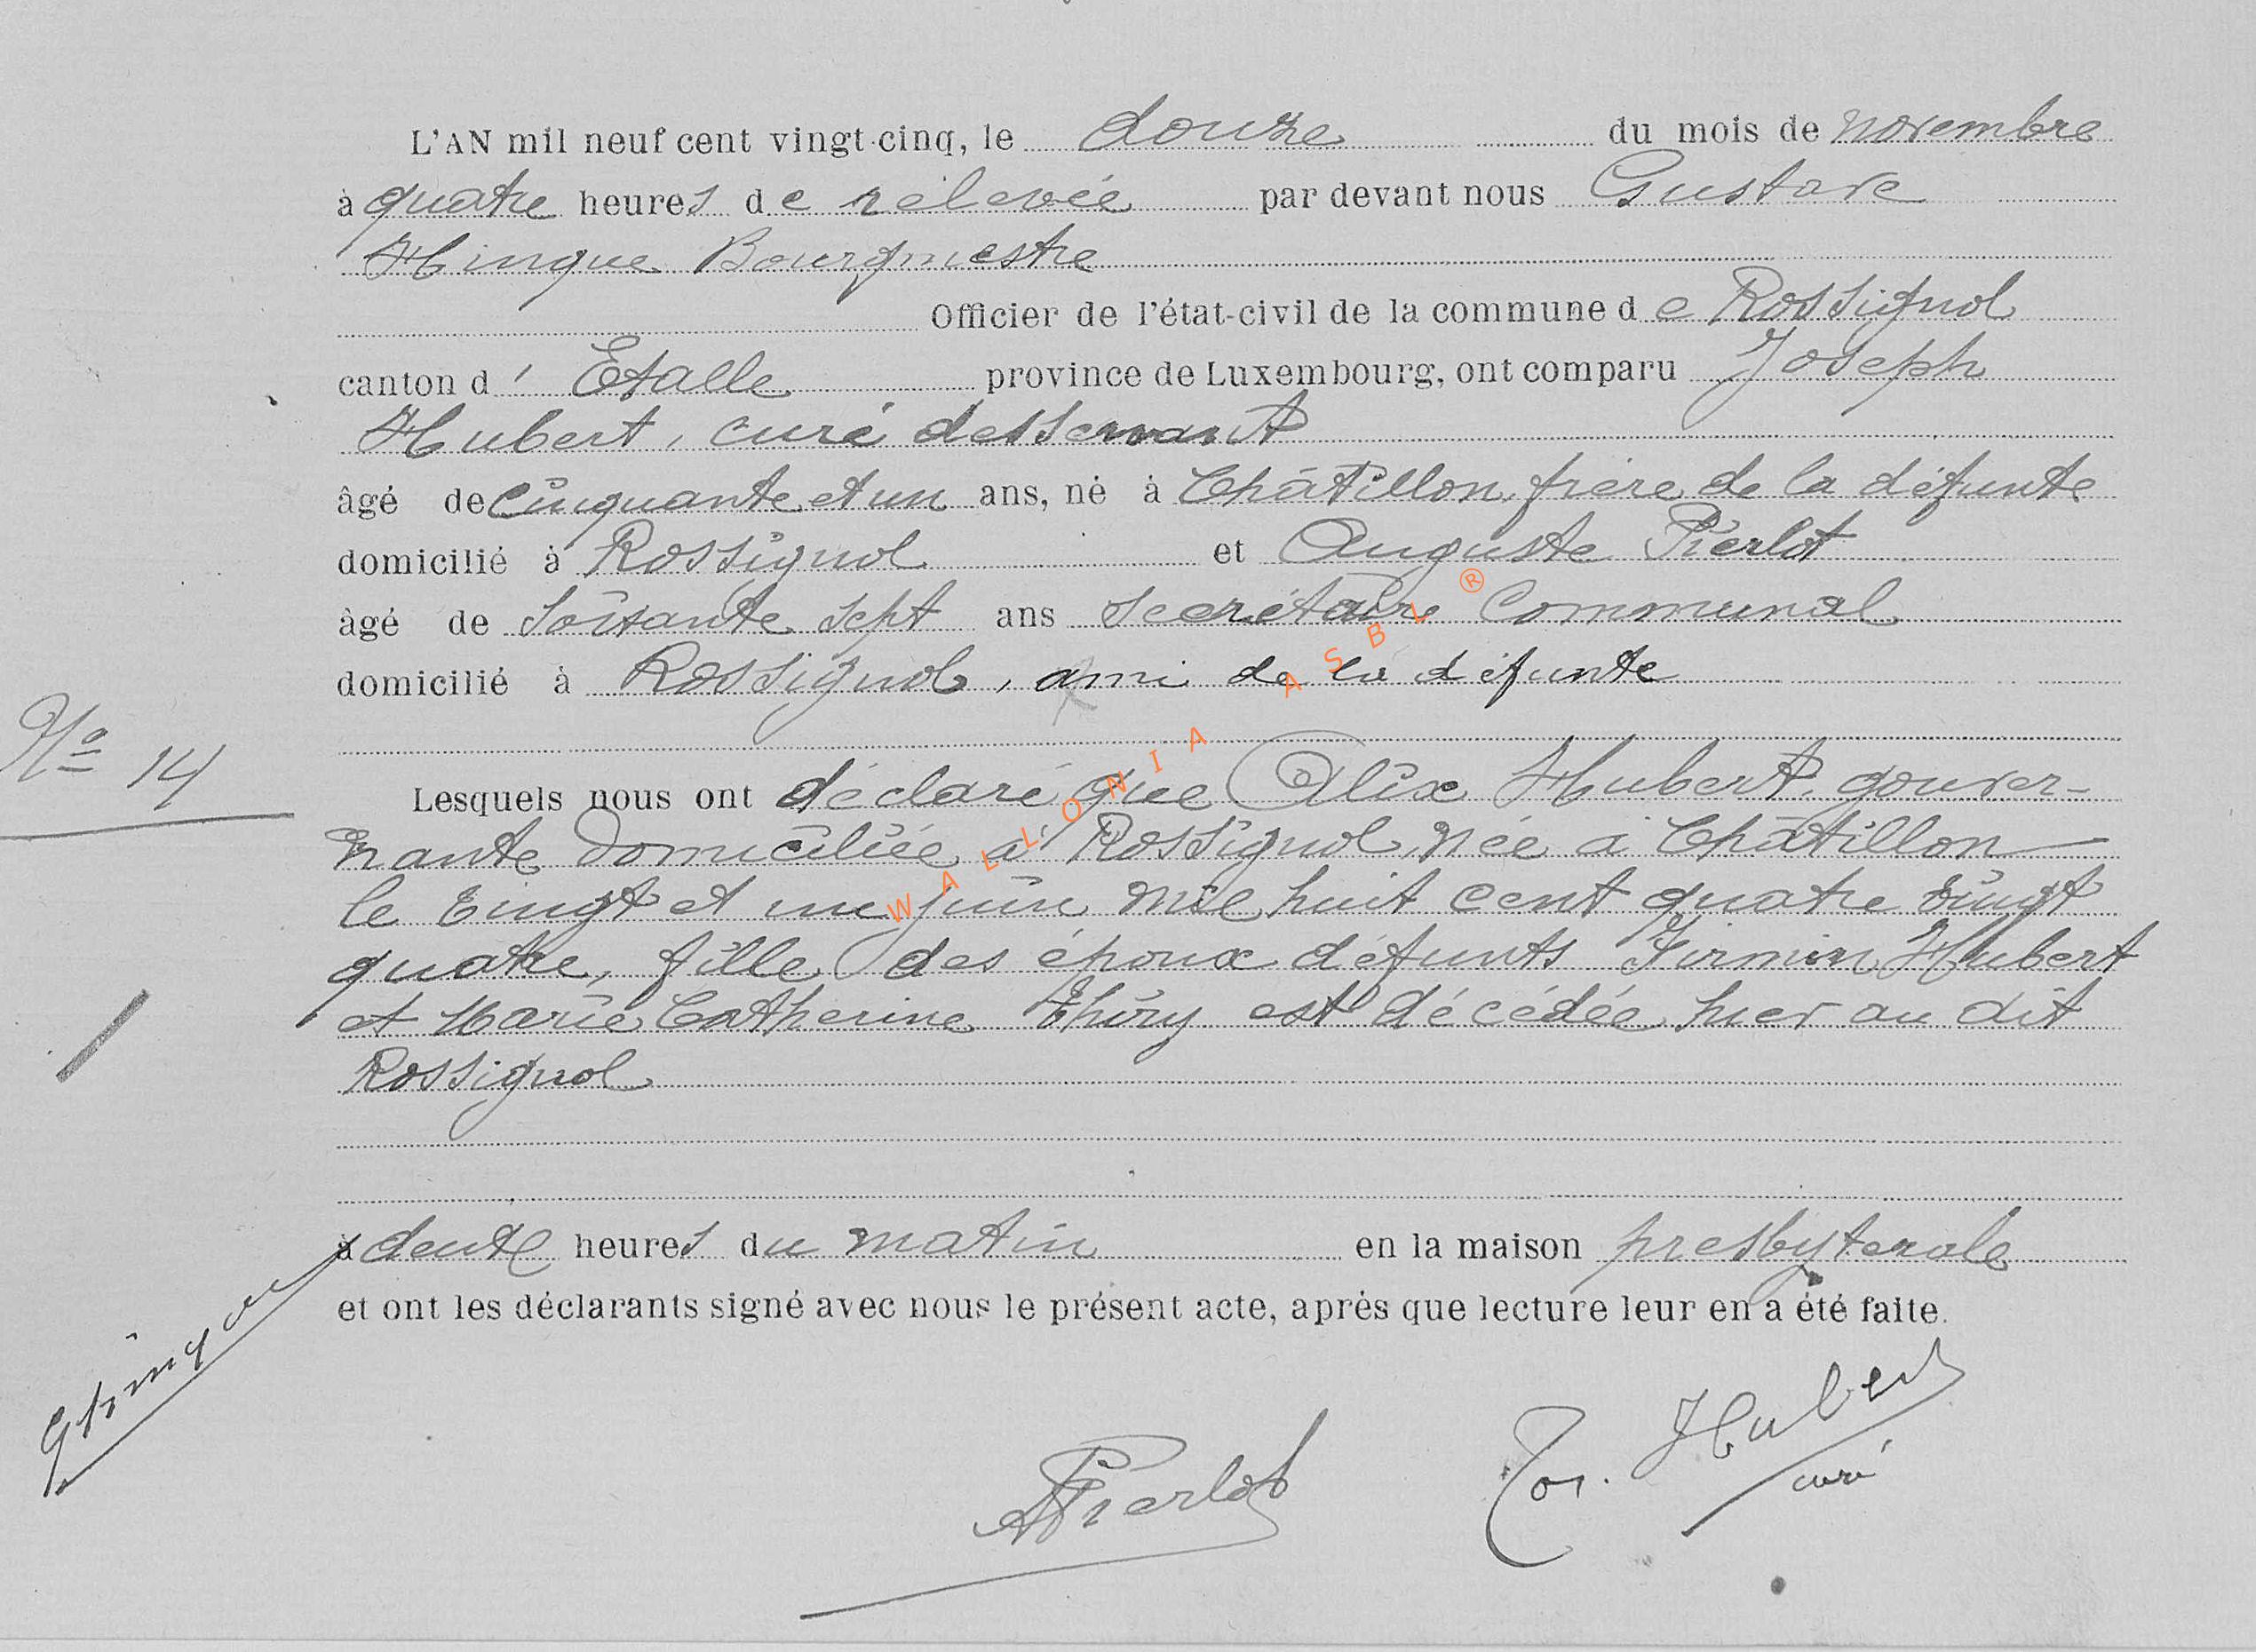 L'AN mil neuf cent vingt-cinq, le douze du mois de novembre
à quatre heures de rélevée par devant nous Gustave
Hinque Bourgmestre
Officier de l'état-civil de la commune de Rossignol
canton d' Etalle province de Luxembourg, ont comparu Joseph
Hubert, curé desservant
âgé de Cinquante et un ans, né à Châtillon, frère de la défunte
domicilié à Rossignol et Auguste Pierlot
âgé de Soixante sept ans secrétaire Communal
domicilié à Rossignol, ami de la défunte
No 14
Lesquels nous ont déclaré que Alix Hubert, gouver-
nante domiciliée à Rossignol, née à Châtillon
le vingt et un juin mil huit cent quatre vingt
quatre, fille des époux défunts Firmin Hubert
et Marie Catherine Thiry est décédée hier au dit
Rossignol
à deux heures du matin en la maison presbytérale
et ont les déclarants signé avec nous le présent acte, après que lecture leur en a été faite.
GHinque
APierlot
Jos. Hubert
curé
WALLONIA ASBL ®